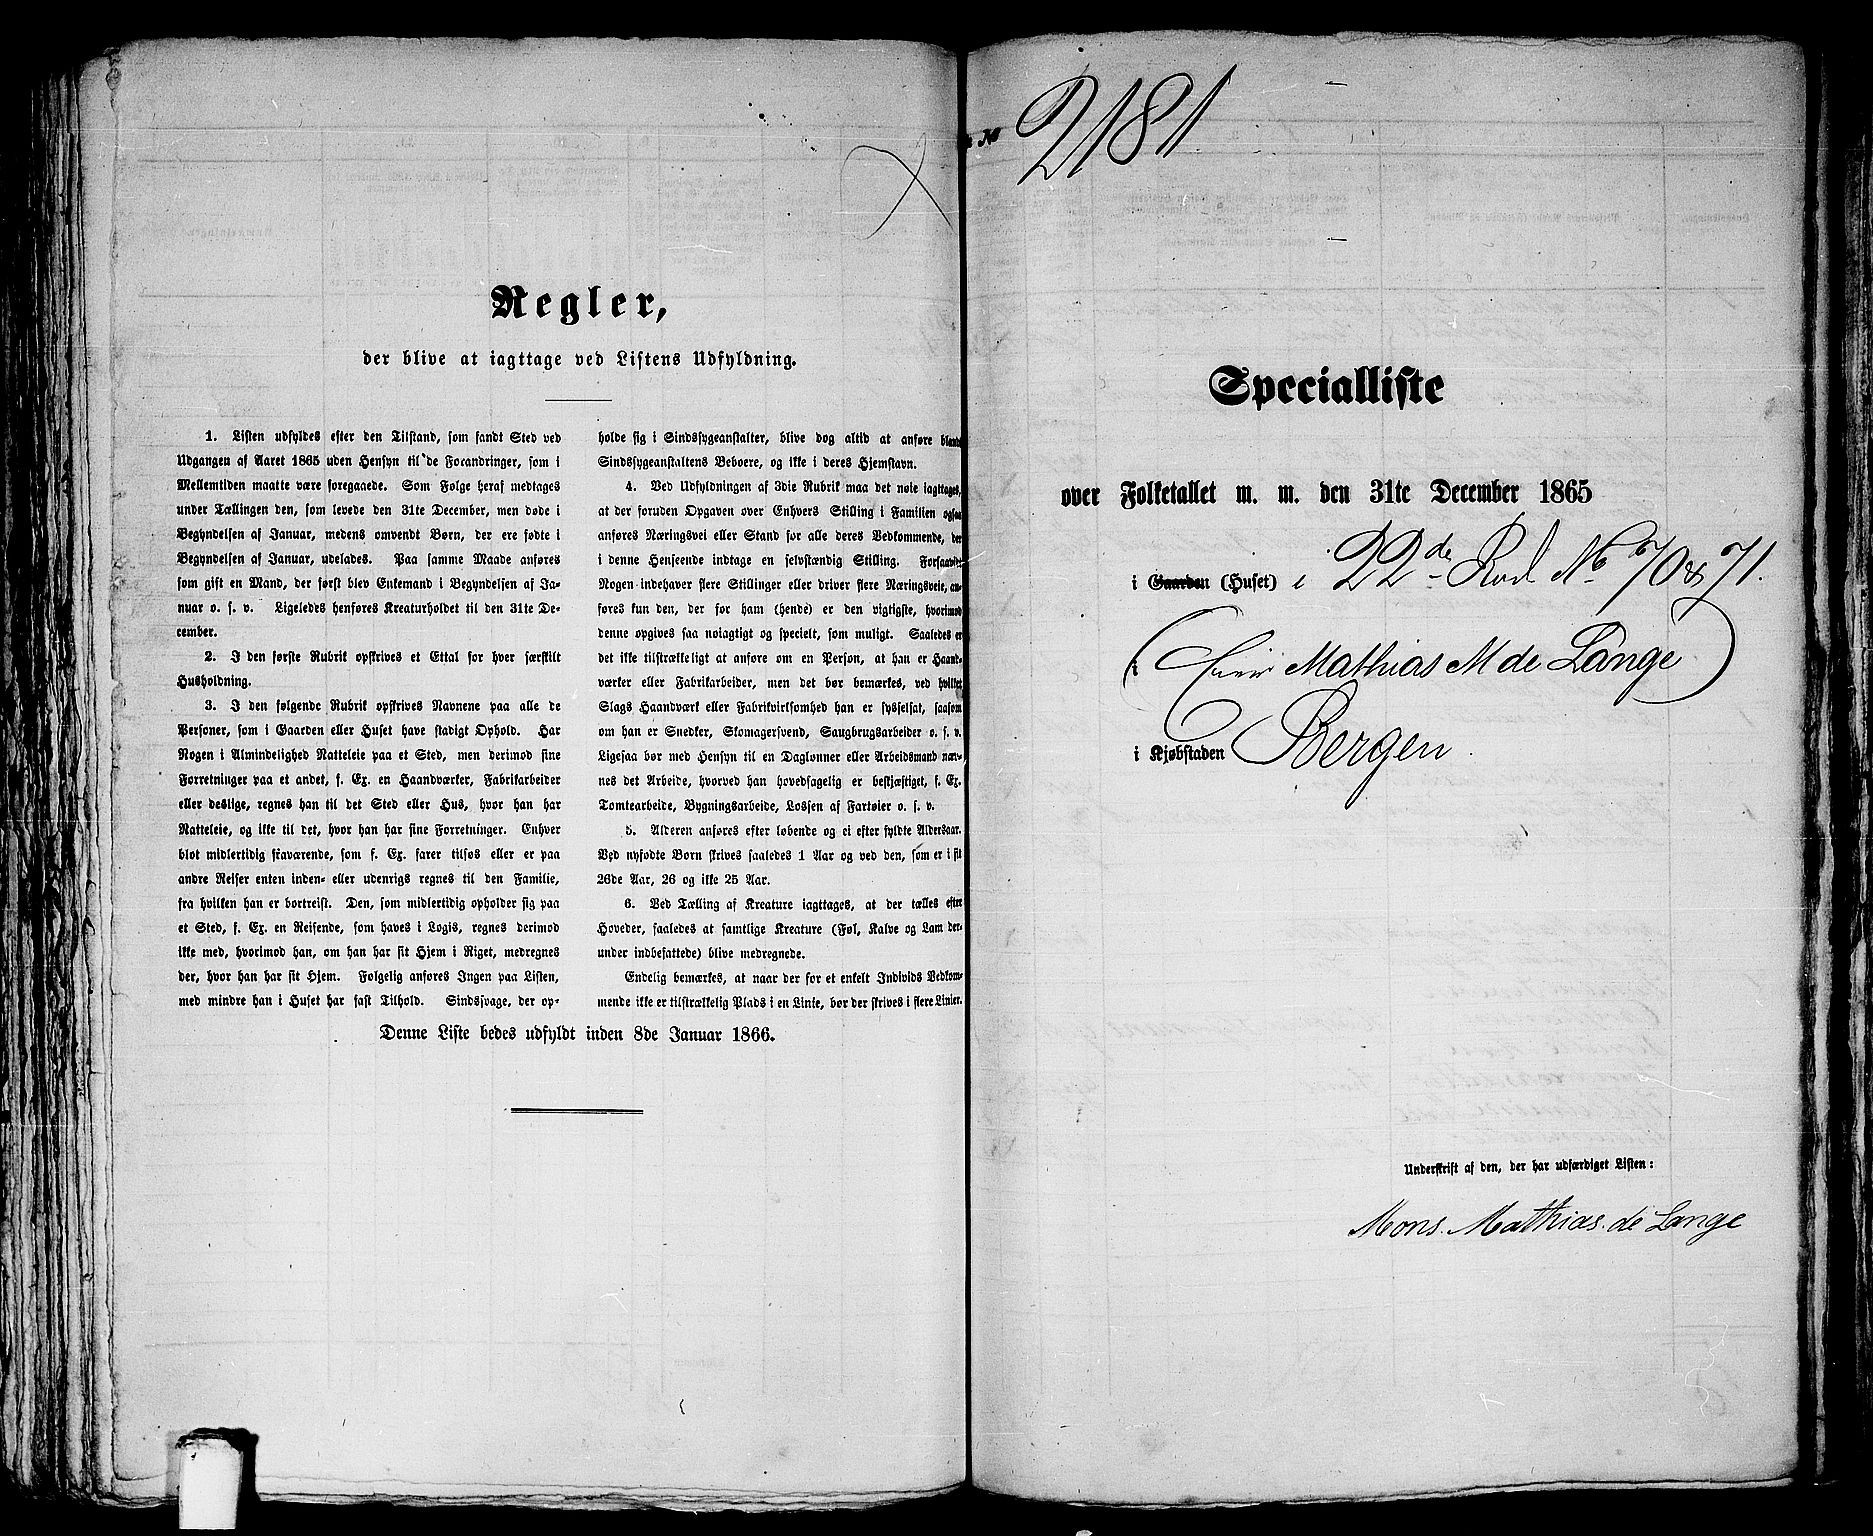 Regler,
der blive at iagttage ved Listens Udfyldning.
1. Listen udfyldes efter den Tilstand, som fandt Sted ved
Udgangen af Aaret 1865 uden Hensyn til de Forandringer, som i
Mellemtiden maatte være foregaaede. Som Følge heraf medtages
under Tællingen den, som levede den 31te December, men døde i
Begyndelsen af Januar, medens omvendt Børn, der ere fødte i
Begyndelsen af Januar, udelades. Paa samme Maade anføres
som gift en Mand, der først blev Enkemand i Begyndelsen af Ja-
nuar o. s. v. Ligeledes henføres Kreaturholdet til den 31te De-
cember.
2. I den første Rubrik opskrives et Ettal for hver særskilt
Husholdning.
3. I den følgende Rubrik opskrives Navnene paa alle de
Personer, som i Gaarden eller Huset have stadigt Ophold. Har
Nogen i Almindelighed Natteleie paa et Sted, men derimod sine
Forretninger paa et andet, f. Ex. en Haandværker, Fabrikarbeider
eller deslige, regnes han til det Sted eller Hus, hvor han har
Natteleie, og ikke til det, hvor han har sine Forretninger. Enhver
blot midlertidig fraværende, som f. Ex. farer tilsøs eller er paa
andre Reiser enten inden- eller udenrigs regnes til den Familie,
fra hvilken han er bortreist. Den, som midlertidig opholder sig paa
et Sted, f. Ex. en Reisende, som haves i Logis, regnes derimod
ikke med, hvorimod han, om han har sit Hjem i Riget, medregnes
der, hvor han har sit Hjem. Følgelig anføres Ingen paa Listen,
med mindre han i Huset har fast Tilhold. Sindssvage, der op-
holde sig i Sindssygeanstalter, blive dog altid at anføre blandt
Sindssygeanstaltens Beboere, og ikke i deres Hjemstavn.
4. Ved Udfyldningen af 3die Rubrik maa det nøie iagttages,
at der foruden Opgaven over Enhvers Stilling i Familien ogsaa
anføres Næringsvei eller Stand for alle deres Vedkommende, der
i denne Henseende indtage en selvstændig Stilling. Forsaavidt
Nogen indehaver flere Stillinger eller driver flere Næringsveie, an-
føres kun den, der for ham (hende) er den vigtigste, hvorimod
denne opgives saa nøiagtigt og specielt, som muligt. Saaledes er
det ikke tilstrækkeligt at anføre om en Person, at han er Haand-
værker eller Fabrikarbeider, men det bør bemærkes, ved hvilket
Slags Haandværk eller Fabrikvirksomhed han er sysselsat, saasom
om han er Snedker, Skomagersvend, Saugbrugsarbeider o. s. v.
Ligesaa bør med Hensyn til en Daglønner eller Arbeidsmand næv-
nes det Arbeide, hvorved han hovedsagelig er beskjæftiget, f. Ex.
Tomtearbeide, Bygningsarbeide, Lossen af Fartøier o. s. v.
5. Alderen anføres efter løbende og ei efter fyldte Aldersaar.
Ved nyfødte Børn skrives saaledes 1 Aar og ved den, som er i sit
26de Aar, 26 og ikke 25 Aar.
6. Ved Tælling af Kreature iagttages, at der tælles efter
Hoveder, saaledes at samtlige Kreature (Føl, Kalve og Lam der-
under indbefattede) blive medregnede.
Endelig bemærkes, at naar der for et enkelt Individs Vedkom-
mende ikke er tilstrækkelig Plads i en Linie, bør der skrives i flere Linier.
Denne Liste bedes udfyldt inden 8de Januar 1866.
No 2181
Specialliste
over Folketallet m. m. den 31te December 1865
i Gaarden (Huset) i 22de Rod No 70 & 71.
i (Eier Mathias M de Lange)
i Kjøbstaden Bergen.
Underskrift af den, der har udfærdiget Listen:
Mons. Mathias. de Lange